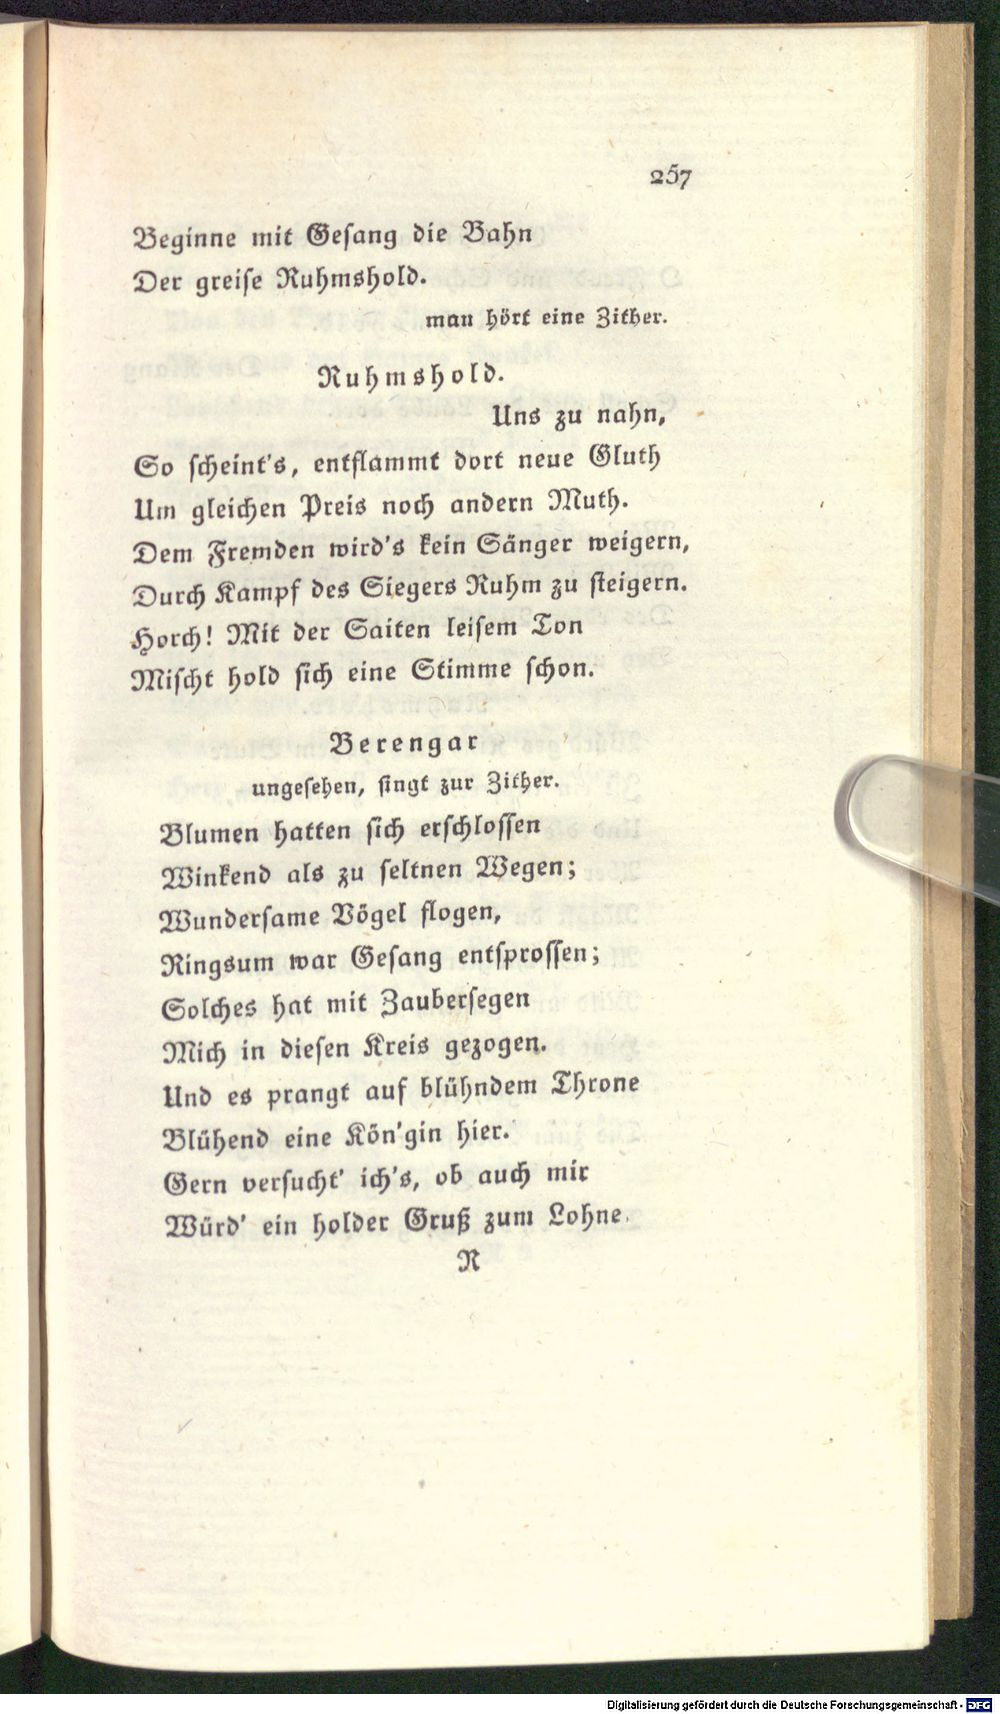 257
Beginne mit Gesang die Bahn
Der greise Ruhmshold.
man hört eine Zither.
Ruhmshold.
Uns zu nahn,
So scheint's, entflammt dort neue Gluth
Um gleichen Preis noch andern Muth.
Dem Fremden wird's kein Sänger weigern,
Durch Kampf des Siegers Ruhm zu steigern.
Horch! Mit der Saiten leisem Ton
Mischt hold sich eine Stimme schon.
Berengar
ungesehen, singt zur Zither.
Blumen hatten sich erschlossen
Winkend als zu seltnen Wegen;
Wundersame Vögel flogen,
Ringsum war Gesang entsprossen;
Solches hat mit Zaubersegen
Mich in diesen Kreis gezogen.
Und es prangt auf blühndem Throne
Blühend eine Kön'gin hier.
Gern versucht' ich's, ob auch mir
Würd' ein holder Gruß zum Lohne.
R
Digitalisierung gefördert durch die Deutsche Forschungsgemeinschaft - DFG